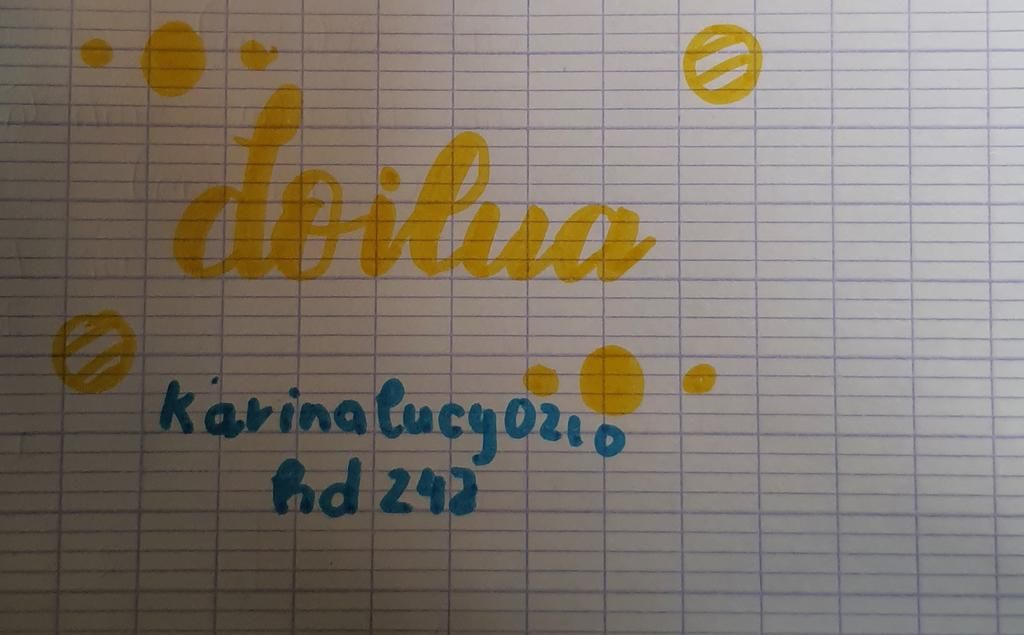 doilua
karinalucy0210
hd 242